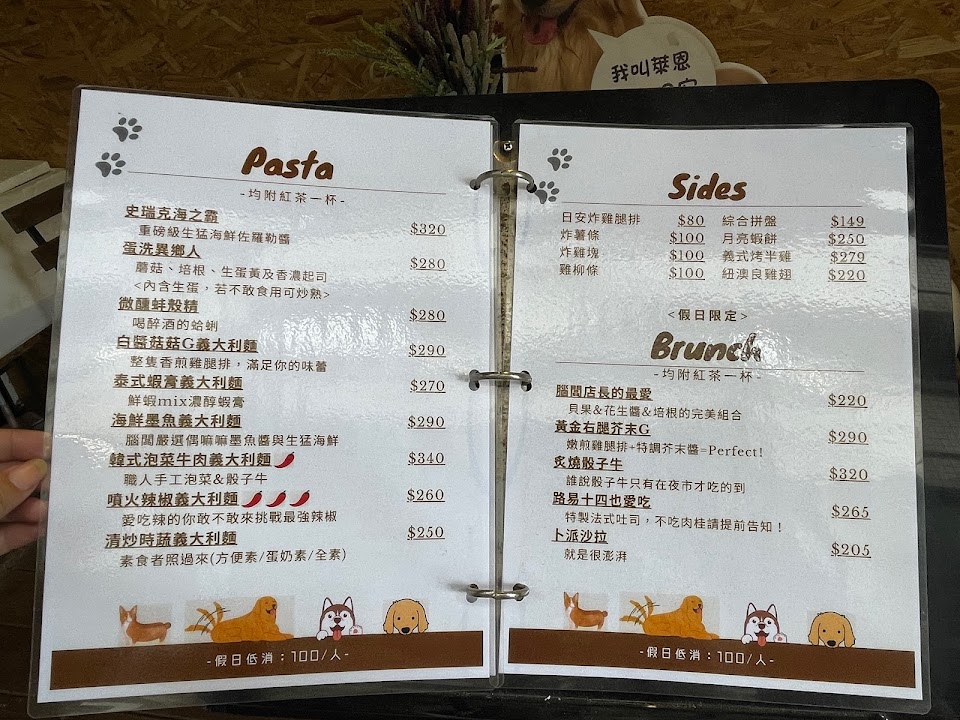 我叫萊恩
Pasta
-均附紅茶一杯-
史瑞克海之霸
重磅級生猛海鮮佐羅勒醬 $320
蛋洗異鄉人
蘑菇、培根、生蛋黃及香濃起司 $280
<內含生蛋，若不敢食用可炒熟>
微醺蚌殼精
喝醉酒的蛤蜊 $280
白醬菇菇G義大利麵
整隻香煎雞腿排，滿足你的味蕾 $290
泰式蝦膏義大利麵
鮮蝦mix濃醇蝦膏 $270
海鮮墨魚義大利麵
腦闆嚴選偶嘛嘛墨魚醬與生猛海鮮 $290
韓式泡菜牛肉義大利麵
職人手工泡菜&骰子牛 $340
噴火辣椒義大利麵
愛吃辣的你敢不敢來挑戰最強辣椒 $260
清炒時蔬義大利麵
素食者照過來(方便素/蛋奶素/全素) $250
-假日低消：100/人-
Sides
日安炸雞腿排 $80 綜合拼盤 $149
炸薯條 $100 月亮蝦餅 $250
炸雞塊 $100 義式烤半雞 $279
雞柳條 $100 紐澳良雞翅 $220
<假日限定>
Brunch
-均附紅茶一杯-
腦闆店長的最愛
貝果&花生醬&培根的完美組合 $220
黃金右腿芥末G
嫩煎雞腿排+特調芥末醬=Perfect! $290
炙燒骰子牛
誰說骰子牛只有在夜市才吃的到 $320
路易十四也愛吃
特製法式吐司，不吃肉桂請提前告知！ $265
卜派沙拉
就是很澎湃 $205
-假日低消：100/人-